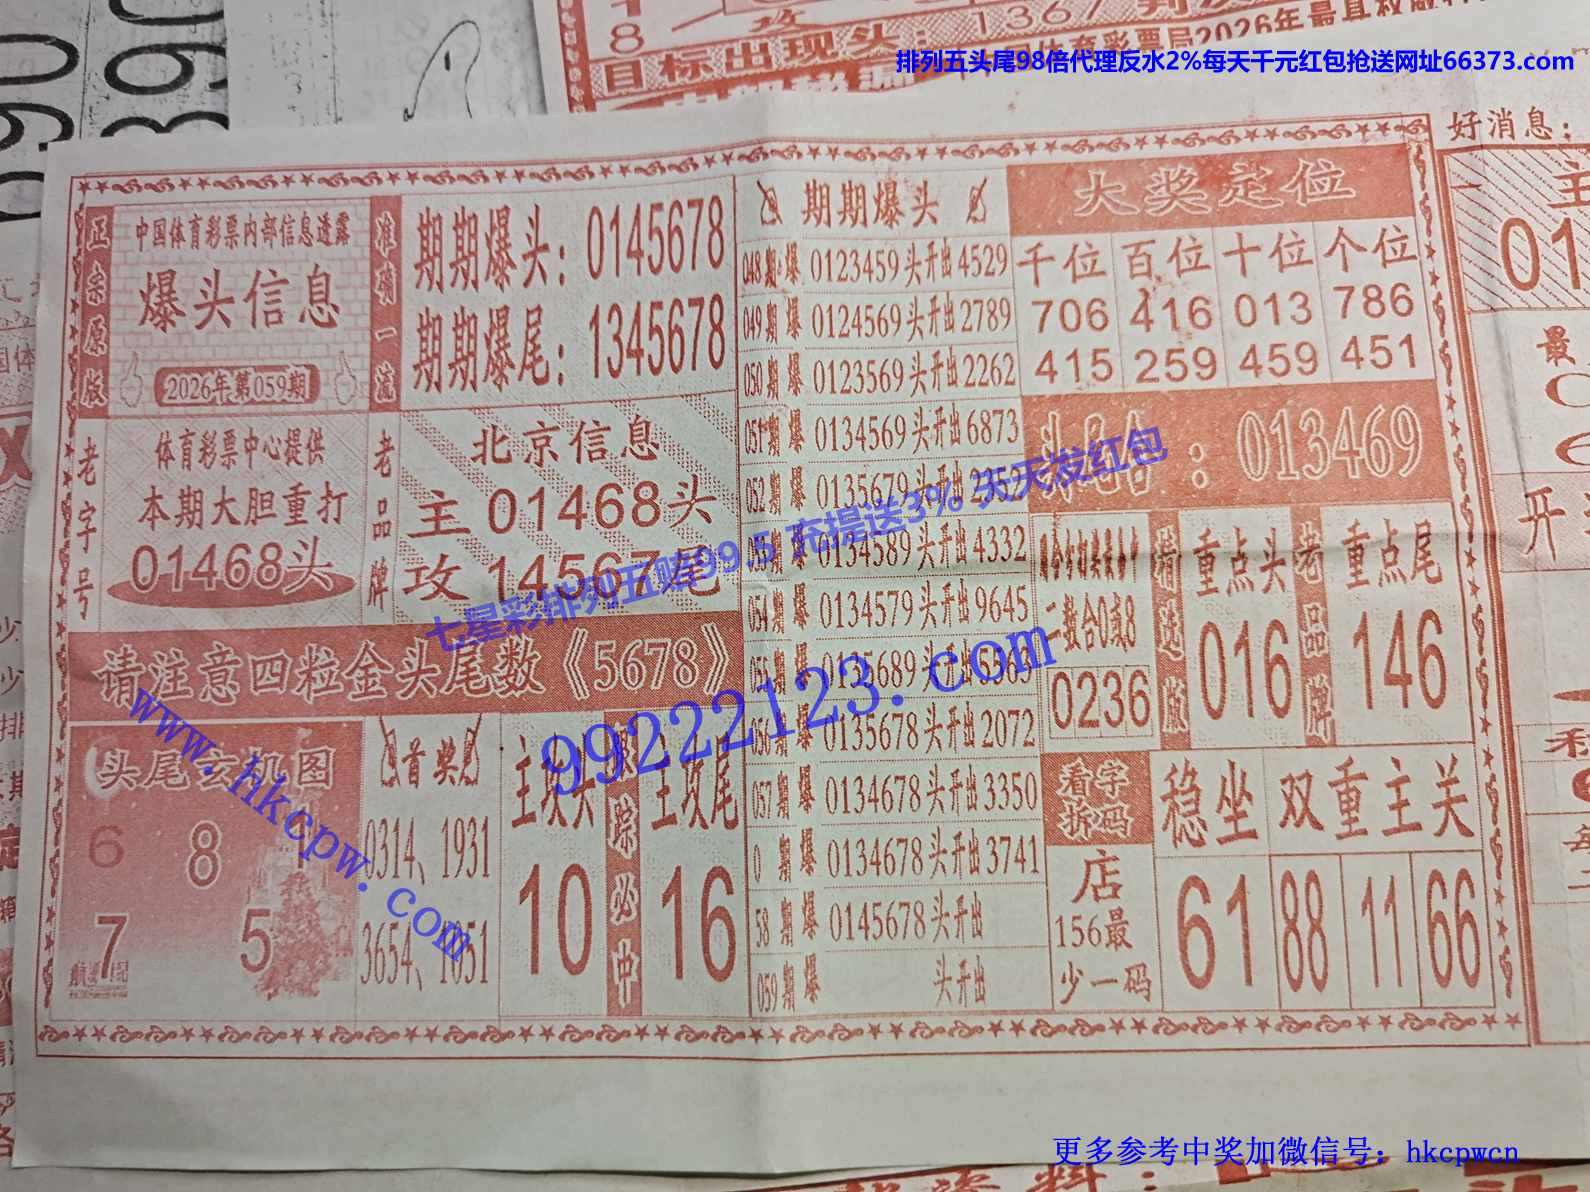 8 攻 1367
目标出现头：
体育彩票局2026年最具权威
排列五头尾98倍代理反水2%每天千元红包抢送网址66373.com
好消息：
正宗原版
中国体育彩票内部信息透露
爆头信息
2026年第059期
准确一流
期期爆头：0145678
期期爆尾：1345678
老字号
体育彩票中心提供
本期大胆重打
01468头
老品牌
北京信息
主01468头
攻14567尾
请注意四粒金头尾数《5678》
头尾玄机图
6
8
7
5
首奖
0314、1931
3654、1051
主攻头
10
跟踪必中
主攻尾
16
期期爆头
048期 爆 0123459头开出4529
049期 爆 0124569头开出2789
050期 爆 0123569头开出2262
051期 爆 0134569头开出6873
052期 爆 0135679头开出2352
053期 爆 0134589头开出4332
054期 爆 0134579头开出9645
055期 爆 0135689头开出5363
056期 爆 0135678头开出2072
057期 爆 0134678头开出3350
0 期 爆 0134678头开出3741
58 期 爆 0145678头开出
059期 爆 头开出
大奖定位
千位 百位 十位 个位
706 416 013 786
415 259 459 451
头尾合：013469
二数合0或8
0236
精选版
重点头
016
老品牌
重点尾
146
看字拆码
店
156最
少一码
稳坐 双重 主关
61 88 11 66
七星彩排列五赔99.5 充提送3% 天天发红包
99222123.com
www.hkcpw.com
更多参考中奖加微信号：hkcpwcn